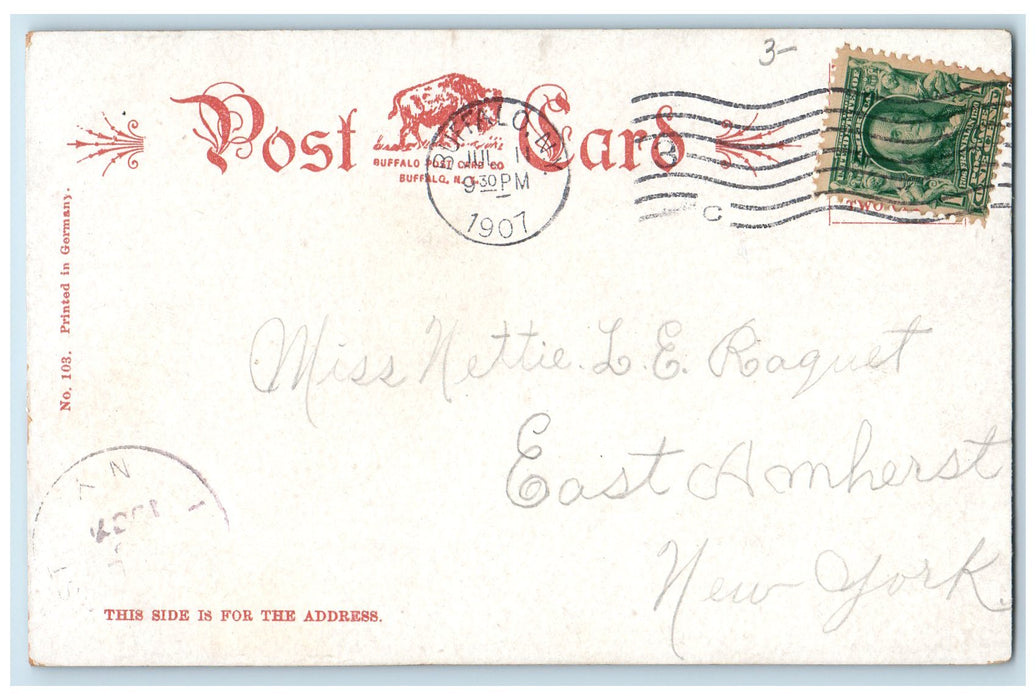 3-
Post Card
BUFFALO POST CARD CO
BUFFALO, N.Y.
BUFFALO, N.
JUL 1
9 30 PM
1907
C
No. 103. Printed in Germany.
Miss Nettie L. E. Raquet
East Amherst
New York.
THIS SIDE IS FOR THE ADDRESS.